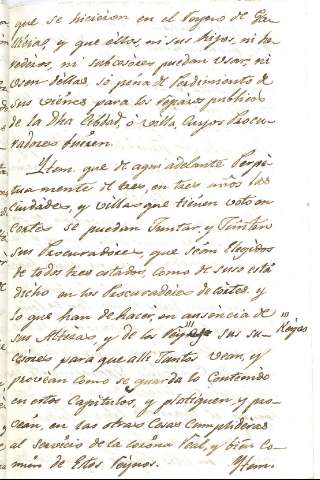 que se hicieren en el Reyno de Ga-
licia, y que ellos, ni sus hijos, ni he-
rederos, ni subcesores puedan usar, ni
usen dellas, só pena de Perdimiento de
sus viénes para los reparos publicos
de la Dha Cibdad, ó villa, Cuyos Procu-
radores fueren.
Ytem. que de aqui adelante Perpe-
tuamente de tres, en tres años las
Ciudades, y villas que tienen voto en
cortes se puedan Juntar, y Junten
sus Procuradores, que seán Elegidos
de todos tres estados, como de suso está
dicho en los Procuradores de cortes. y
lo que han de hacer, en ausencia de
sus Altezas, y de los sus su- Reyes
cesores para que alli Juntos vean, y
proveán como se guarda lo Contenido
en estos Capitulos, y platiquen, y pro-
veán, en las otras Cosas Cumplideras
al servicio de la corona Real, y bien Co-
mún de Estos Reynos. Ytem.